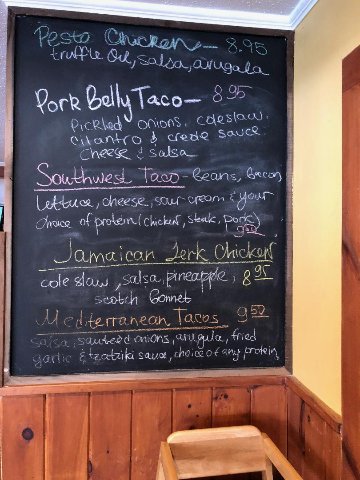 Pesto Chicken - 8.95
truffle oil, salsa, arugula
Pork Belly Taco - 8.95
Pickled onions, coleslaw,
cilantro & creole sauce
cheese & salsa
Southwest Taco - beans, bacon
lettuce, cheese, sour cream & your
choice of protein (chicken, steak, pork)
9.50
Jamaican Jerk Chicken
coleslaw, salsa, pineapple, 8.95
scotch bonnet
Mediterranean Tacos 9.50
salsa, sauteed onions, arugula, fried
garlic & tzatziki sauce, choice of any protein